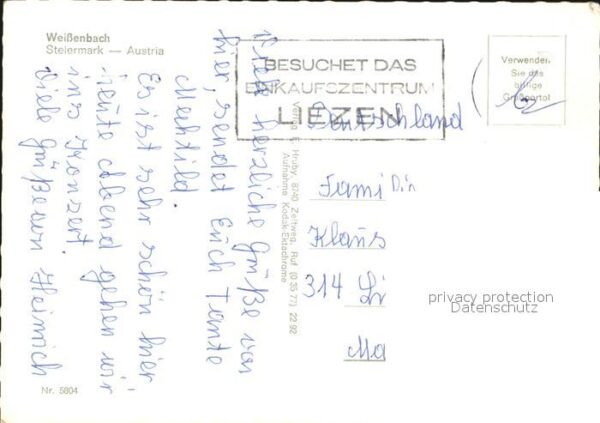 Weißenbach
Steiermark — Austria
BESUCHET DAS
EINKAUFSZENTRUM
LIEZEN
Verwenden
Sie das
Viele herzliche Grüße von
hier, sendet Euch Tante
Mechtild.
Es ist sehr schön hier,
heute Abend gehen wir
ins Konzert.
Viele Grüße von Heinrich
Verlag E. Hruby, 8740 Zeltweg, Ruf (0 35 77) 22 92
Aufnahme Kodak-Ektachrome
Deutschland
Fami
Klaus
314 Li
Ma
privacy protection
Datenschutz
Nr. 5804